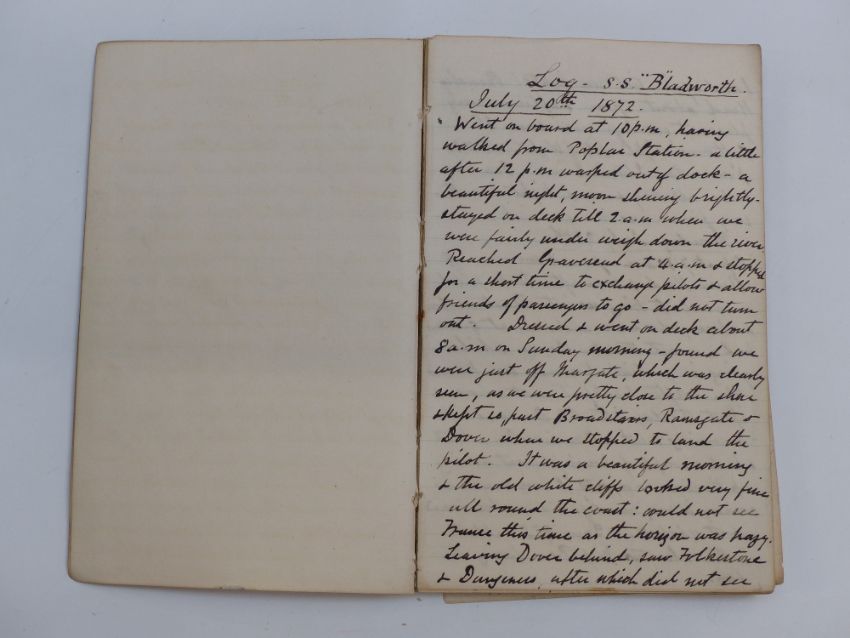 Log - S.S. "Bladworth.
July 20th 1872.
"Went on board at 10 p.m, having
walked from Poplar Station - a little
after 12 p.m warped out of dock - a
beautiful night, moon shining brightly -
stayed on deck till 2 a.m when we
were fairly under weigh down the river
Reached Gravesend at 4 a.m & stopped
for a short time to exchange pilots & allow
friends of passengers to go - did not turn
out. Dressed & went on deck about
8 a.m on Sunday morning - found we
were just off Margate, which was clearly
seen, as we were pretty close to the shore
& kept so, past Broadstairs, Ramsgate &
Dover where we stopped to land the
pilot. It was a beautiful morning
& the old white cliffs looked very fine
all round the coast: could not see
France this time as the horizon was hazy.
Leaving Dover behind, saw Folkestone
& Dungeness, after which did not see